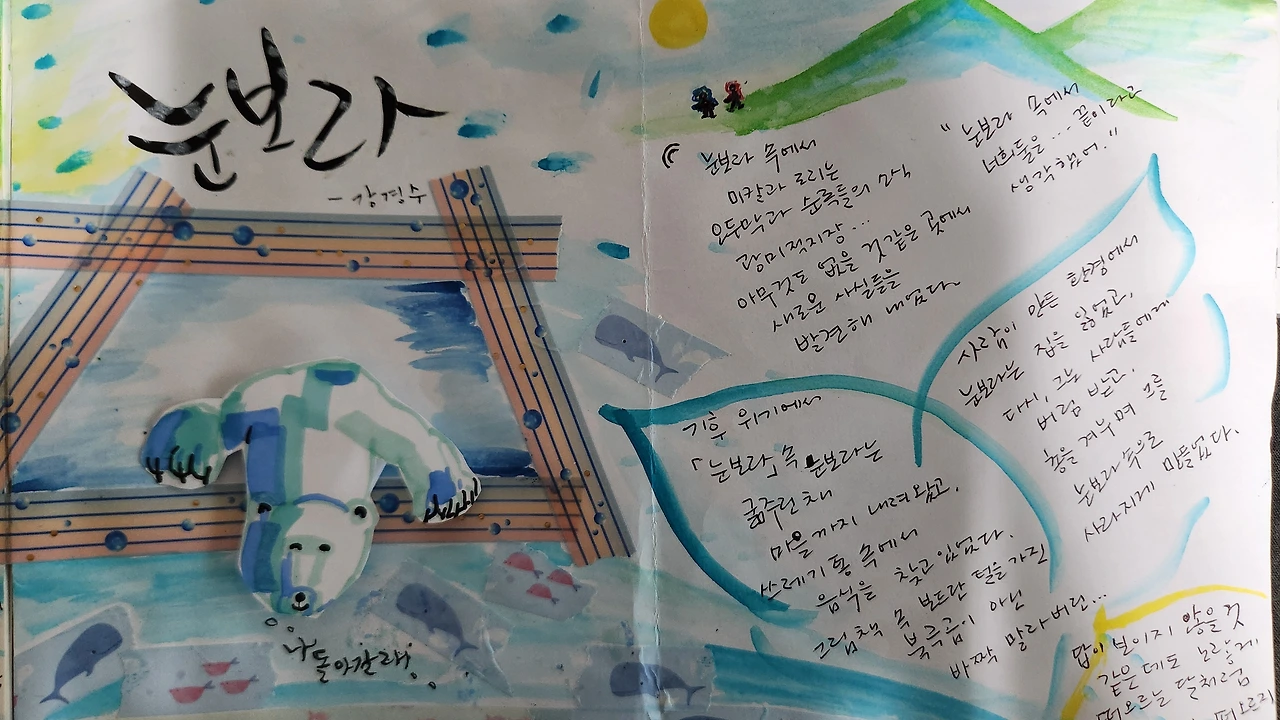 눈보라
- 강경수
나
돌아갈래!
눈보라 속에서
미칼과 로리는
오두막과 순록들의 소식
광미적치장...
아무것도 없을 것 같은 곳에서
새로운 사실들을
발견해 내었다.
" 눈보라 속에서
너희들은.... 끝이라고
생각했어. "
사람이 만든 환경에서
눈보라는 집을 잃었고,
다시, 그는 사람들에게
버림 받고,
총을 겨누며 그를
눈보라 속으로
사라지게 만들었다.
기후 위기에서
「눈보라」 속 눈보라는
굶주린 채
마을까지 내려왔고,
쓰레기통 속에서
음식을 찾고 있었다.
그림책 속 보드란 털을 가진
북극곰이 아닌
바짝 말라버린...
앞이 보이지 않을 것
같은 데도 노랗게
떠오르는 달처럼
떠오르